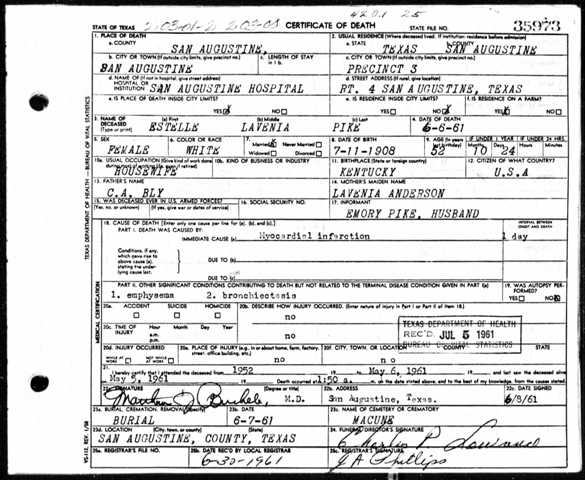 4201 25
STATE OF TEXAS CERTIFICATE OF DEATH STATE FILE NO. 35973
1. PLACE OF DEATH 2. USUAL RESIDENCE (Where deceased lived. If institution: residence before admission)
a. COUNTY SAN AUGUSTINE, a. STATE TEXAS b. COUNTY SAN AUGUSTINE
b. CITY OR TOWN (If outside city limits, give precinct no.) c. LENGTH OF STAY in 1 b. c. CITY OR TOWN (If outside city limits, give precinct no.)
SAN AUGUSTINE PRECINCT 3
d. NAME OF (If not in hospital, give street address) HOSPITAL OR INSTITUTION SAN AUGUSTINE HOSPITAL d. STREET ADDRESS (If rural, give location) RT. 4 SAN AUGUSTINE, TEXAS
e. IS PLACE OF DEATH INSIDE CITY LIMITS? YES NO e. IS RESIDENCE INSIDE CITY LIMITS? YES NO f. IS RESIDENCE ON A FARM? YES NO
3. NAME OF DECEASED (Type or print) (a) First ESTELLE (b) Middle LAVENIA (c) Last PIKE 4. DATE OF DEATH 6-6-61
5. SEX FEMALE 6. COLOR OR RACE WHITE 7. Married Never Married Widowed Divorced 8. DATE OF BIRTH 7-11-1908 9. AGE (In years last birthday) 52 IF UNDER 1 YEAR 10 24 IF UNDER 24 HRS.
10a. USUAL OCCUPATION (Give kind of work done during most of working life, even if retired) HOUSEWIFE 10b. KIND OF BUSINESS OR INDUSTRY 11. BIRTHPLACE (State or foreign country) KENTUCKY 12. CITIZEN OF WHAT COUNTRY? U.S.A
13. FATHER'S NAME C.A. BLY 14. MOTHER'S MAIDEN NAME LAVENIA ANDERSON
15. WAS DECEASED EVER IN U.S. ARMED FORCES? (Yes, no, or unknown) (If yes, give war or dates of service) 16. SOCIAL SECURITY NO. 17. INFORMANT EMORY PIKE, HUSBAND
18. CAUSE OF DEATH [Enter only one cause per line for (a), (b), and (c).] INTERVAL BETWEEN ONSET AND DEATH
PART I. DEATH WAS CAUSED BY:
IMMEDIATE CAUSE (a) Myocardial infarction 1 day
Conditions, if any, which gave rise to above cause (a), stating the underlying cause last. DUE TO (b)
DUE TO (c)
PART II. OTHER SIGNIFICANT CONDITIONS CONTRIBUTING TO DEATH BUT NOT RELATED TO THE TERMINAL DISEASE CONDITION GIVEN IN PART I(a) 19. WAS AUTOPSY PERFORMED? YES NO
1. emphysema 2. bronchiectasis
20a. ACCIDENT SUICIDE HOMICIDE 20b. DESCRIBE HOW INJURY OCCURRED. (Enter nature of injury in Part I or Part II of item 18.)
no
20c. TIME OF INJURY Hour Month Day Year a.m. p.m.
TEXAS DEPARTMENT OF HEALTH
REC'D JUL 5 1961
BUREAU OF VITAL STATISTICS
20d. INJURY OCCURRED WHILE AT WORK NOT WHILE AT WORK 20e. PLACE OF INJURY (e.g., in or about home, farm, factory, street, office building, etc.) no 20f. CITY, TOWN, OR LOCATION COUNTY STATE no
21. I hereby certify that I attended the deceased from 1952 to May 6, 1961 and last saw the deceased alive
May 5, 1961 Death occurred at 1:50 a. m. on the date stated above, and to the best of my knowledge, from the causes stated.
22a. SIGNATURE (Degree or title) M.D. 22b. ADDRESS San Augustine, Texas. 22c. DATE SIGNED 6/8/61
23a. BURIAL, CREMATION, REMOVAL (Specify) BURIAL 23b. DATE 6-7-61 23c. NAME OF CEMETERY OR CREMATORY MACUNE
23d. LOCATION (City, town, or county) (State) SAN AUGUSTINE, COUNTY, TEXAS 24. FUNERAL DIRECTOR'S SIGNATURE
25a. REGISTRAR'S FILE NO. 25b. DATE REC'D BY LOCAL REGISTRAR 6-30-1961 25c. REGISTRAR'S SIGNATURE J A Phillips
TEXAS DEPARTMENT OF HEALTH - BUREAU OF VITAL STATISTICS
MEDICAL CERTIFICATION